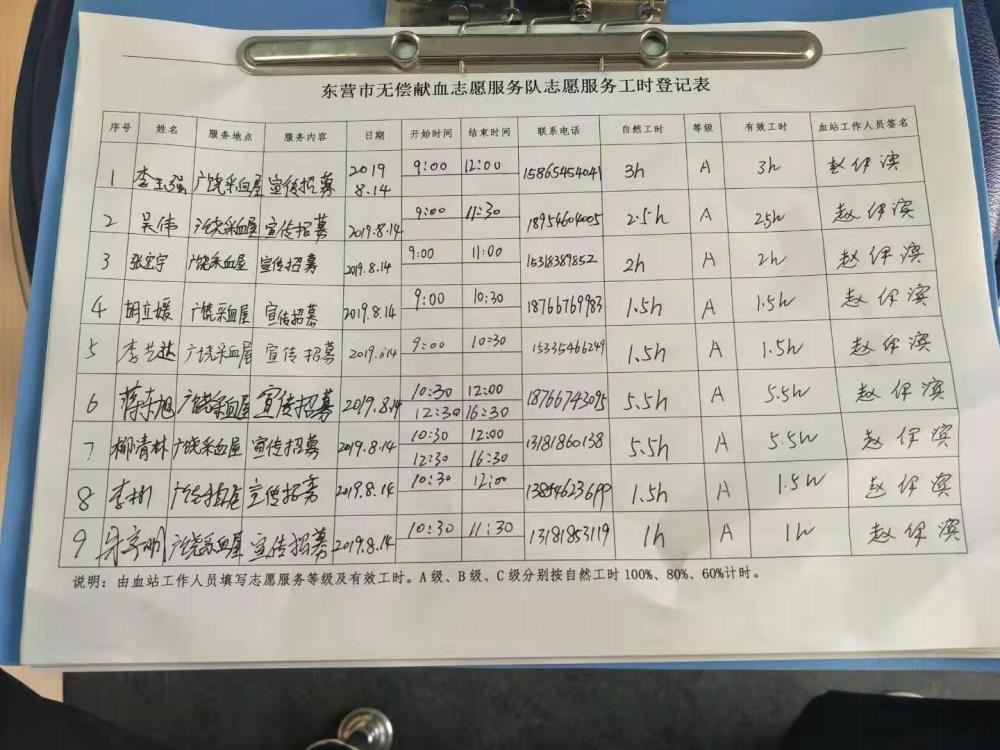 东营市无偿献血志愿服务队志愿服务工时登记表
序号 姓名 服务地点 服务内容 日期 开始时间 结束时间 联系电话 自然工时 等级 有效工时 血站工作人员签名
1 李玉强 广饶采血屋 宣传招募 2019 8.14 9:00 12:00 15865454041 3h A 3h 赵伊滨
2 吴伟 广饶采血屋 宣传招募 2019.8.14 9:00 11:30 18954604005 2.5h A 2.5h 赵伊滨
3 张宝宇 广饶采血屋 宣传招募 2019.8.14 9:00 11:00 15318389852 2h A 2h 赵伊滨
4 胡立媛 广饶采血屋 宣传招募 2019.8.14 9:00 10:30 18766769983 1.5h A 1.5h 赵伊滨
5 李兰达 广饶采血屋 宣传招募 2019.8.14 9:00 10:30 15335466249 1.5h A 1.5h 赵伊滨
6 蒋东旭 广饶采血屋 宣传招募 2019.8.14 10:30 12:00 18766743095 5.5h A 5.5h 赵伊滨
12:30 16:30
7 柳清林 广饶采血屋 宣传招募 2019.8.14 10:30 12:00 13181860138 5.5h A 5.5h 赵伊滨
12:30 16:30
8 李彬 宣传招募 2019.8.14 10:30 12:00 13854623699 1.5h A 1.5h 赵伊滨
9 广饶采血屋 宣传招募 2019.8.14 10:30 11:30 13181853119 1h A 1h 赵伊滨
说明：由血站工作人员填写志愿服务等级及有效工时。A级、B级、C级分别按自然工时100%、80%、60%计时。